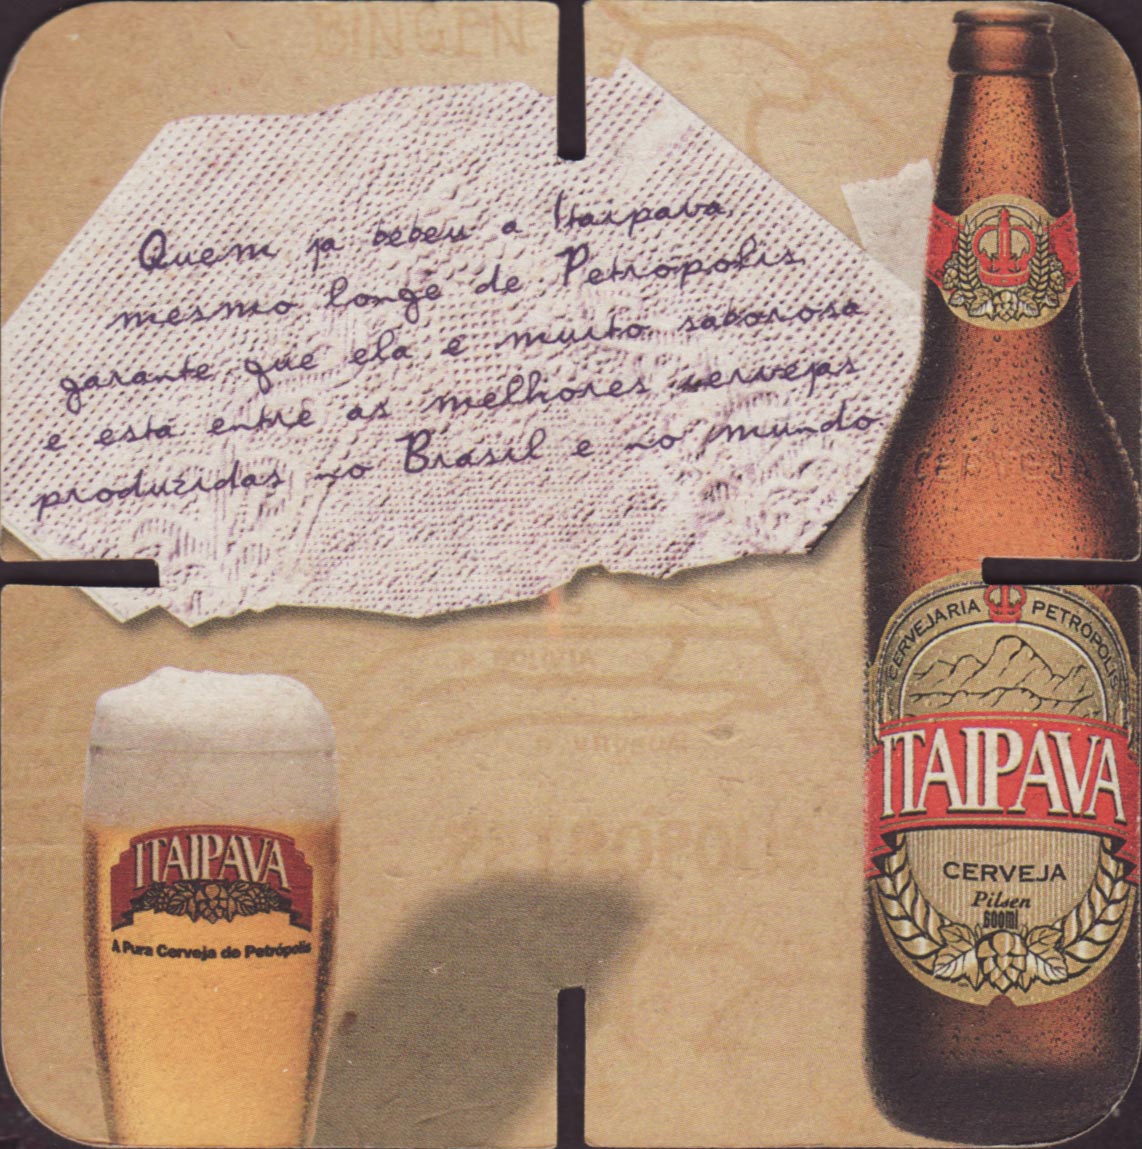 BINGEN
Quem já bebeu a Itaipava,
mesmo longe de Petrópolis,
garante que ela é muito saborosa
e está entre as melhores cervejas
produzidas no Brasil e no mundo
CERVEJA
CERVEJARIA PETRÓPOLIS
ITAIPAVA
CERVEJA
Pilsen
600ml
ITAIPAVA
A Pura Cerveja de Petrópolis